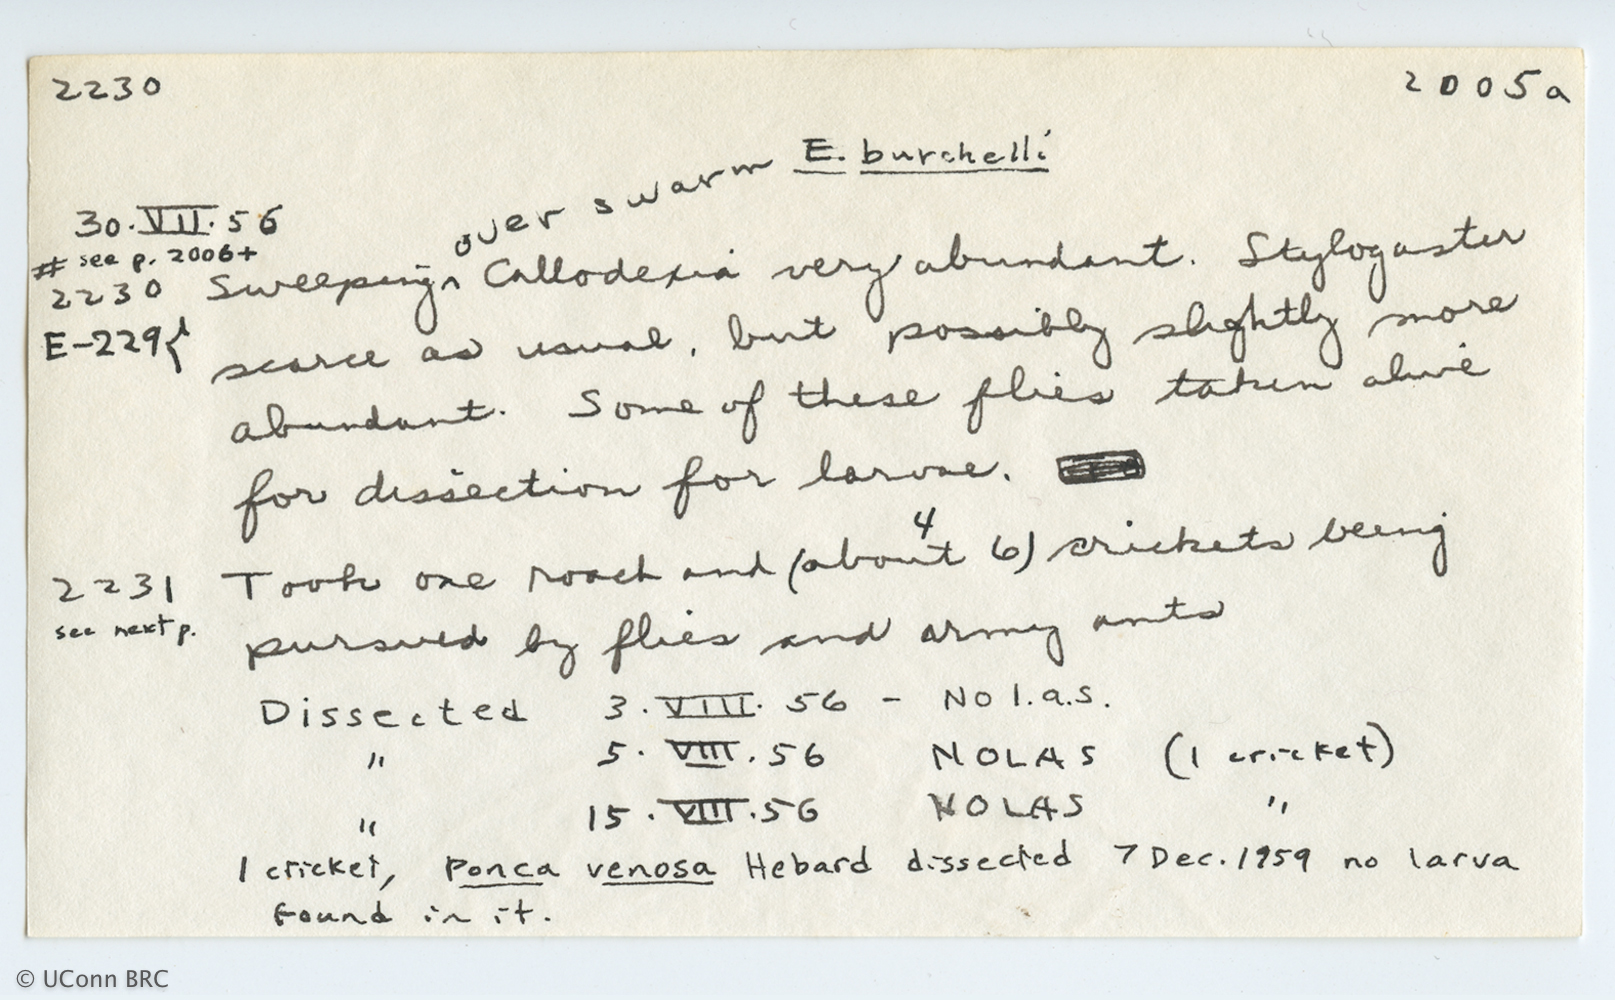 2230
2005a
over swarm E. burchelli
30.VII.56
# see p. 2006+
2230 Sweeping^ Callodexia very abundant. Stylogaster
E-229{ scarce as usual, but possibly slightly more
abundant. Some of these flies taken alive
for dissection for larvae.
4
2231 Took one roach and (about 6) crickets being
see next p.
pursued by flies and army ants
Dissected 3.VIII.56 - No l.a.s.
" 5.VIII.56 NOLAS (1 cricket)
" 15.VIII.56 NOLAS "
1 cricket, Ponca venosa Hebard dissected 7 Dec. 1959 no larva
found in it.
© UConn BRC